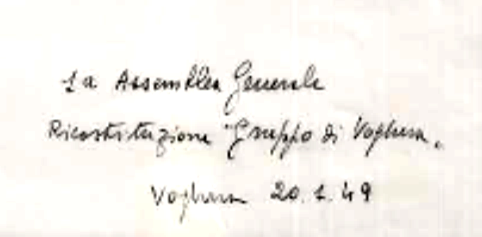 1a Assemblea Generale
Ricostituzione Gruppo di Voghera.
Voghera 20.1.49